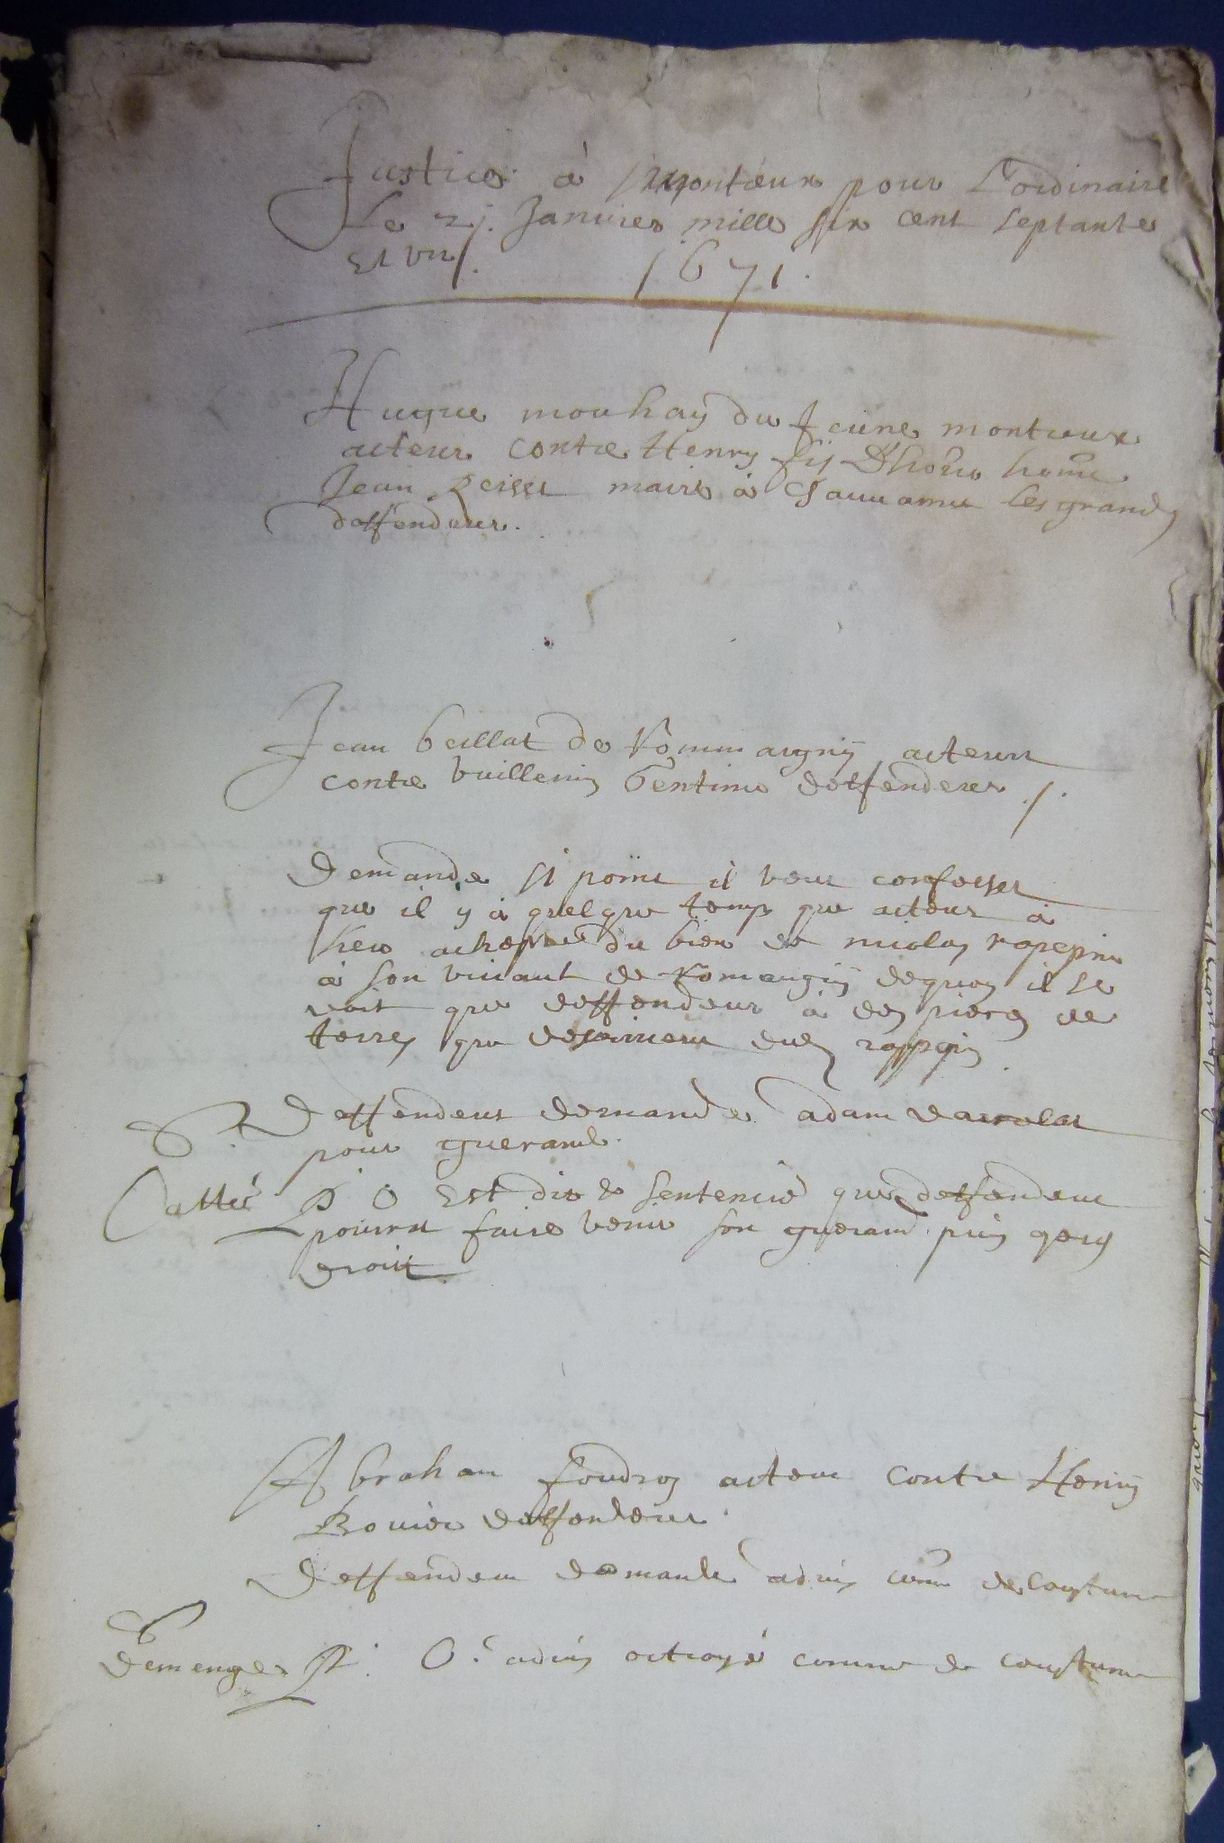 Justice à Montieux pour L'ordinaire
Le 21. Janvier mille six cent septante
Et un /.
1671.
Hugue mouhay du Jeune montreux
acteur contre Henry fij D'ho͞no ho͞me
Jean Reisse maire à les grand
deffendeur.
Jean beillat de Rommaigny acteur
contre Vuillemin Gentine deffendeur ./.
Demande si point il veut confesser
que il y à quelque temps que acteur à
achepté du bien de nicolas rapepin
à son vivant de Romaigny dequoy il se
voit que deffendeur à des pieces de
terres que dud rappepin
R. deffendeur demande adam
pour guerand.
P O Est dit & sentencié que deffendeur
pourra faire venir son guerand puis apres
droict
Abraham foudroy acteur contre Henry
Bouvier deffendeur.
deffendeur demande advis com̄e de coustume
demenge P. O. advis octroyé comme de coustume